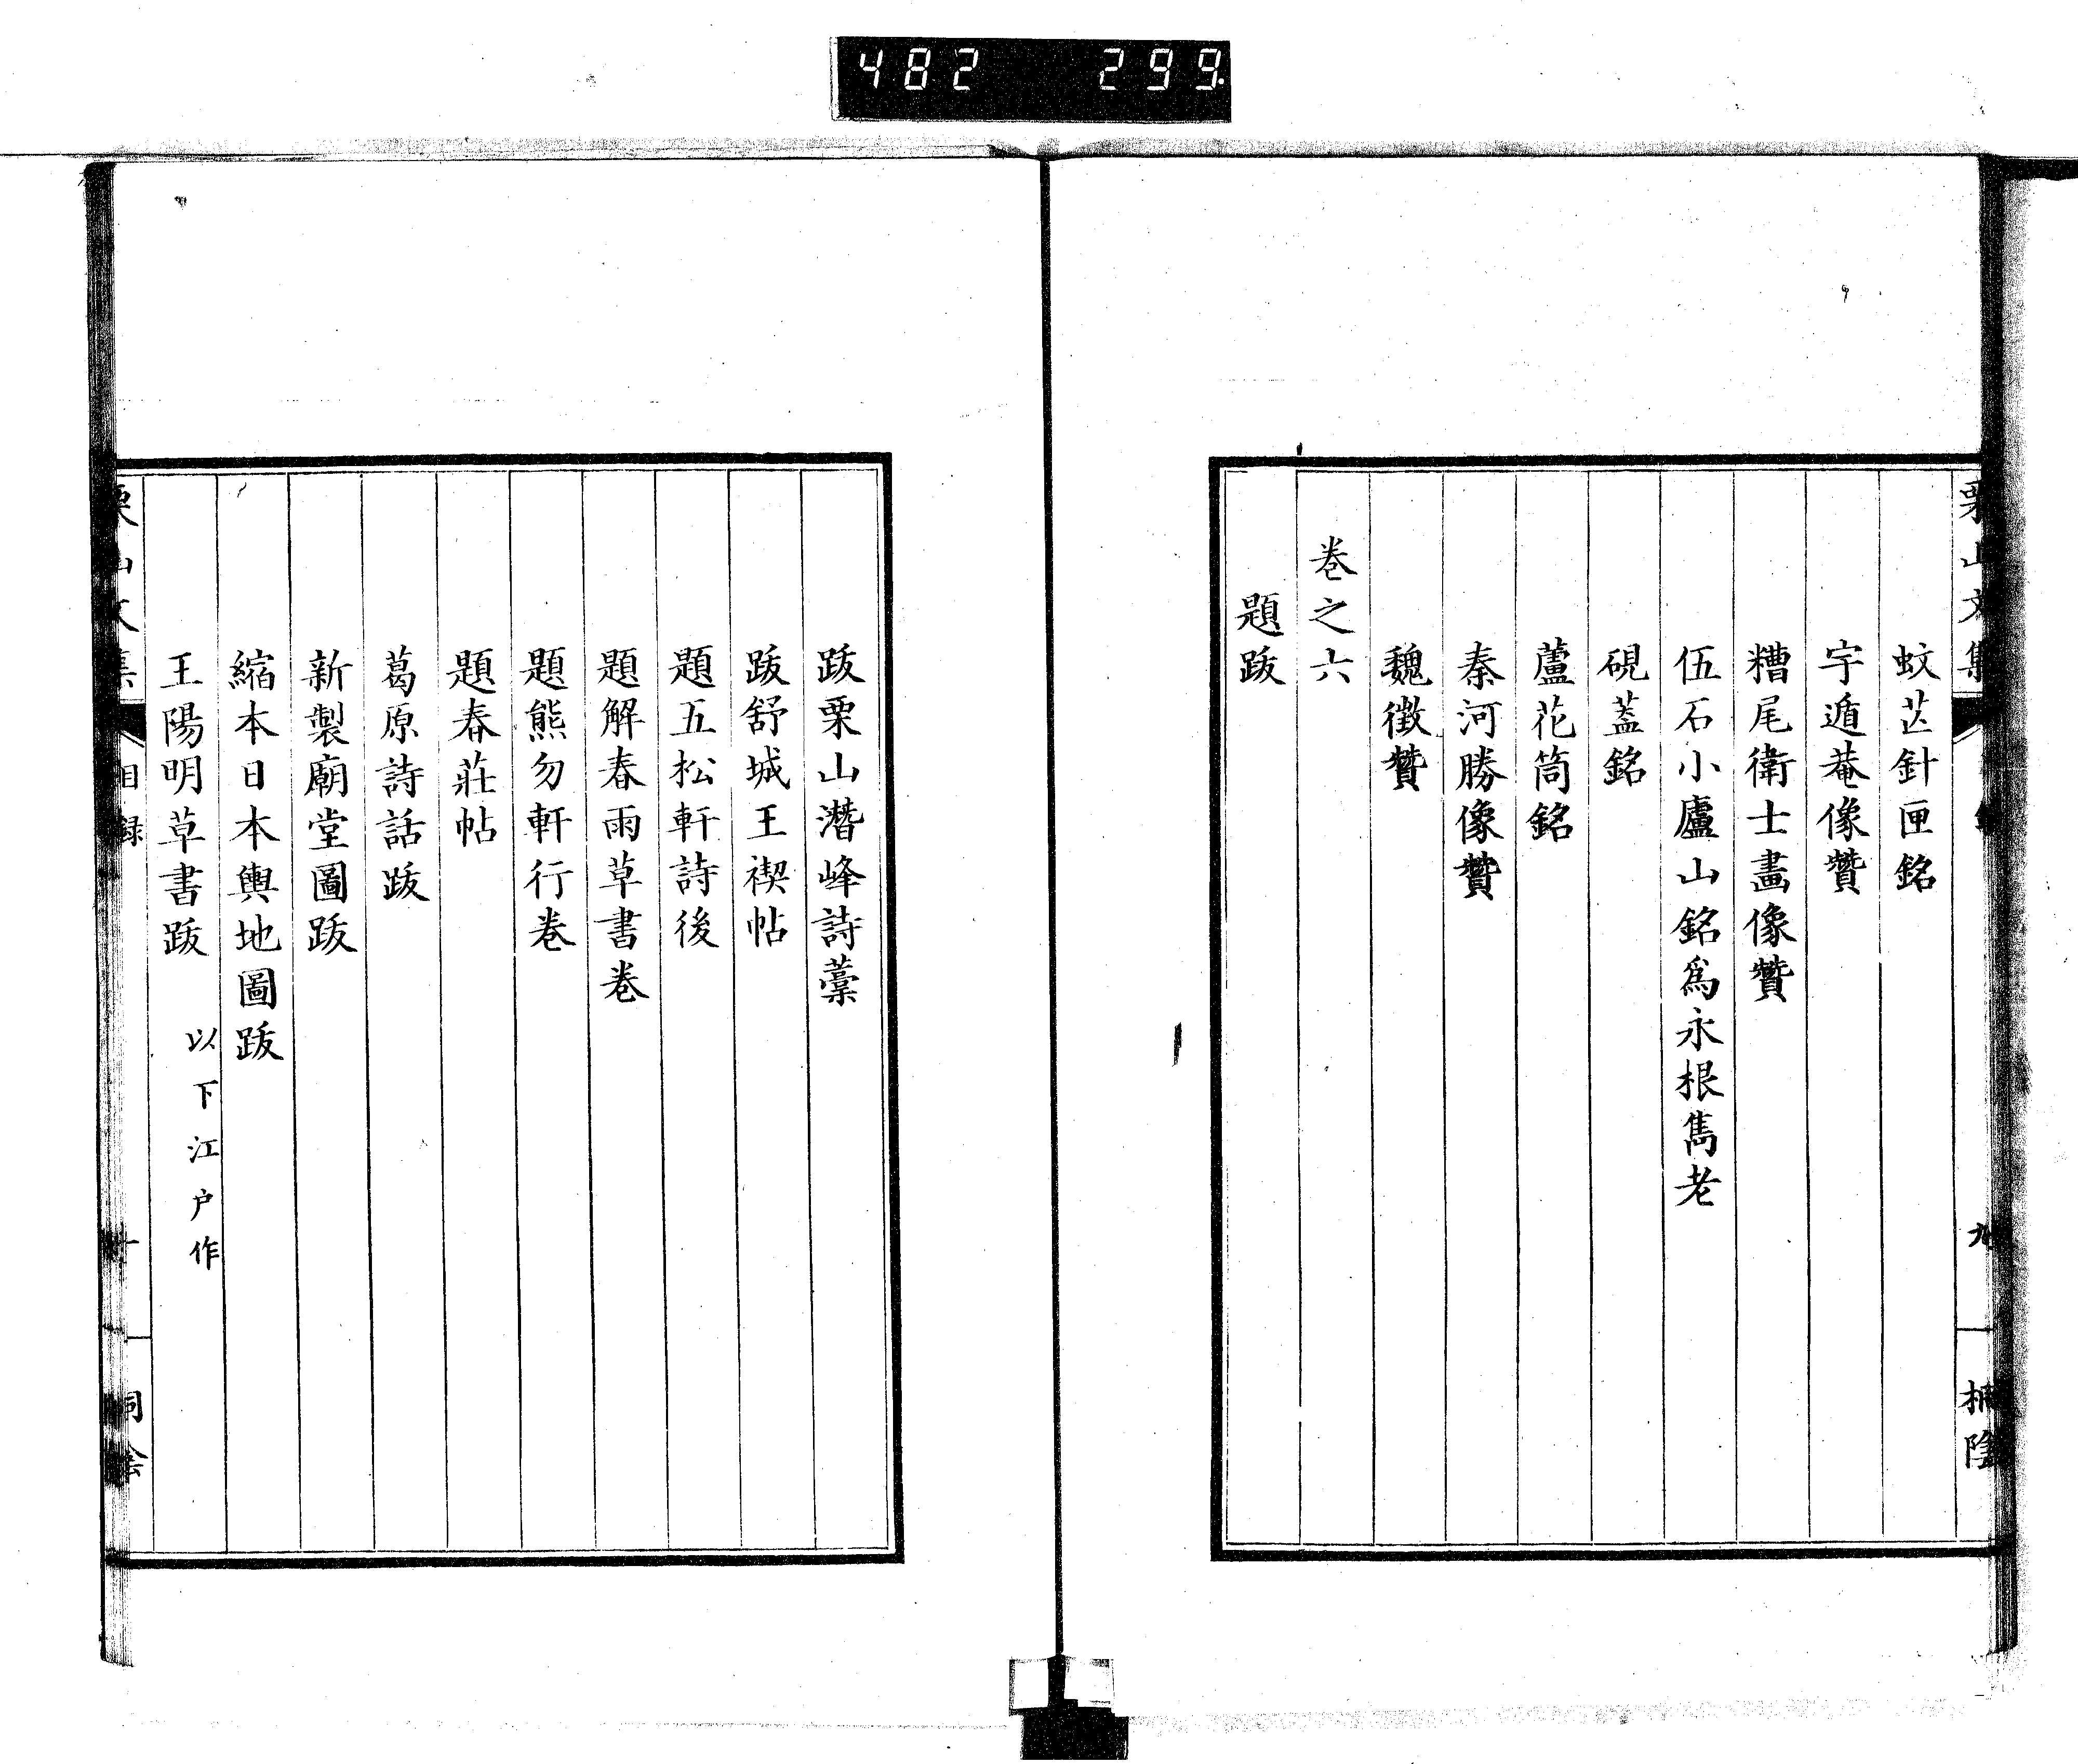 482 299
栗山文集
九
蚊芒針匣銘
宇遁菴像贊
糟尾衛士畫像贊
伍石小廬山銘爲永根雋老
硯蓋銘
蘆花筒銘
秦河勝像贊
魏徴贊
卷之六
題跋
跋栗山潛峰詩藁
跋舒城王禊帖
題五松軒詩後
題解春雨草書卷
題熊勿軒行卷
題春莊帖
葛原詩話跋
新製廟堂圖跋
縮本日本輿地圖跋
王陽明草書跋 以下江户作
栗山文集
目録
十